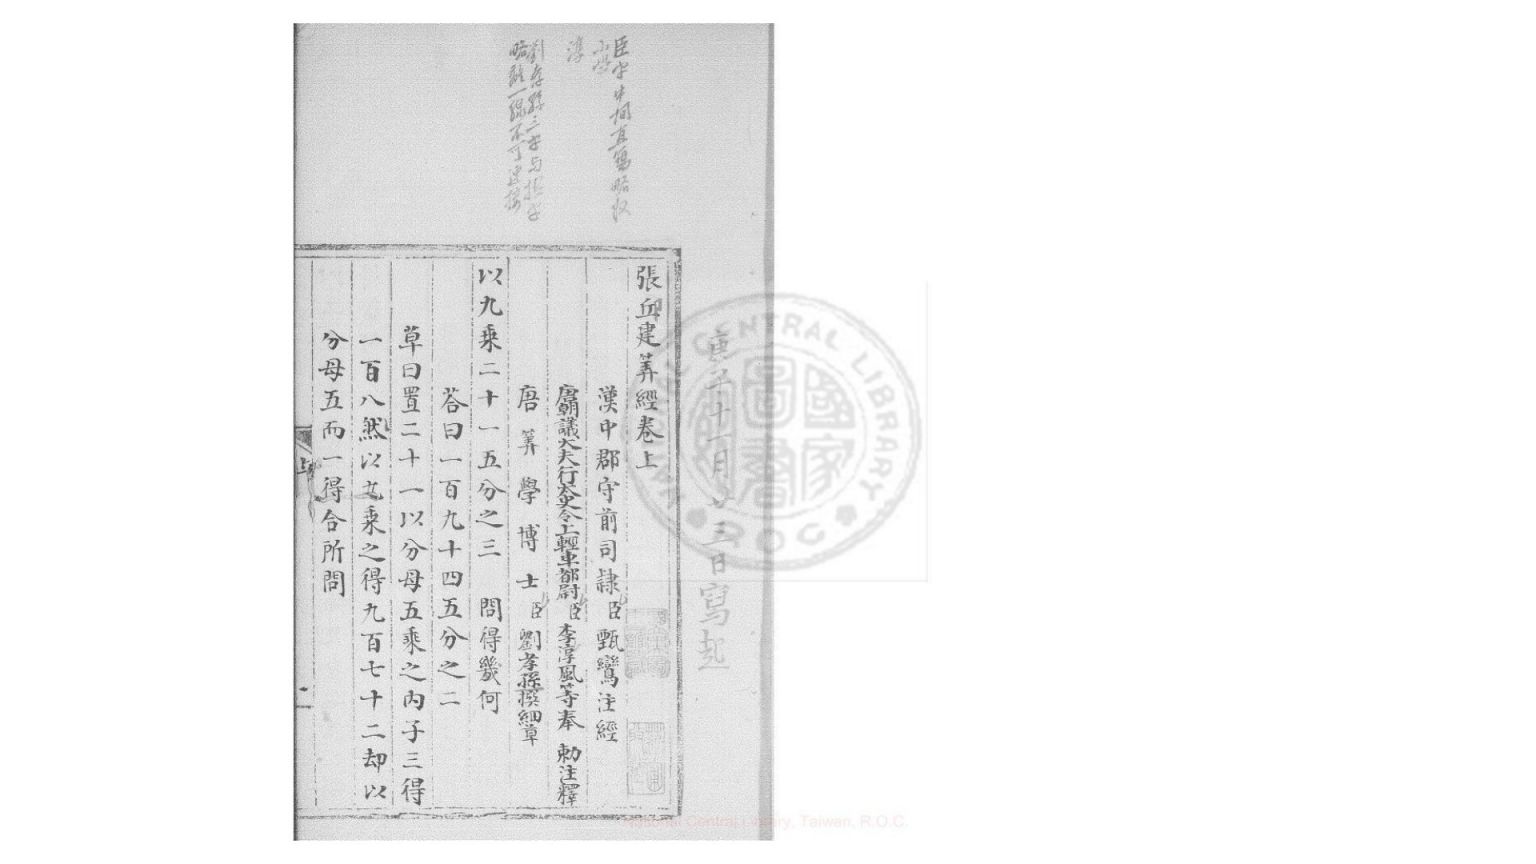 臣字中間直寫略收
小學
淳
劉孝孫三字與撰字
略離一線不可連接
庚子十一月廿三日寫起
張丘建筭經卷上
漢中郡守前司隸臣甄鸞注經
唐朝議大夫行太史令上輕車都尉臣李淳風等奉 勅注釋
唐筭學博士臣劉孝孫撰細草
以九乘二十一五分之三 問得幾何
荅曰一百九十四五分之二
草曰置二十一以分母五乘之內子三得
一百八然以九乘之得九百七十二却以
分母五而一得合所問
上
一
NATIONAL CENTRAL LIBRARY
R.O.C
國家圖書館
National Central Library, Taiwan, R.O.C.